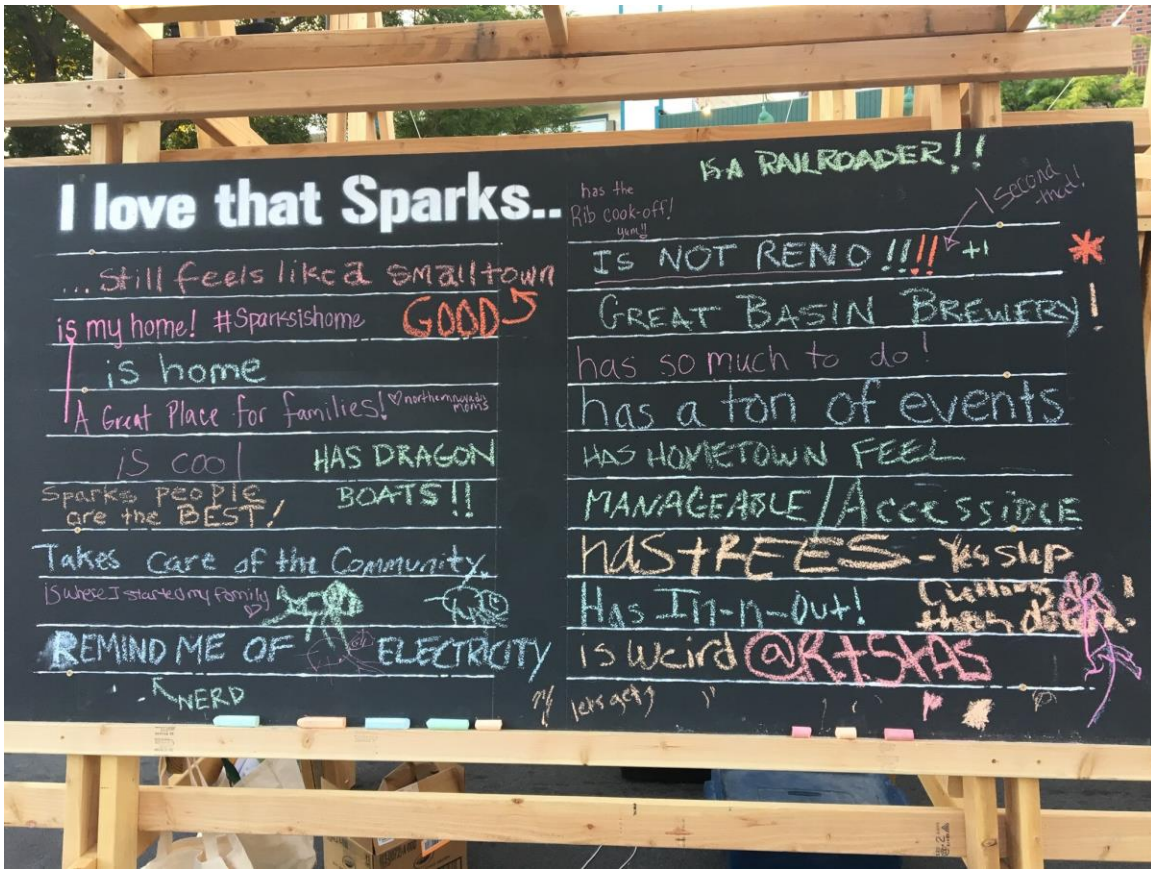 I love that Sparks..
... still feels like a small town
is my home! #Sparksishome GOOD
is home
A Great Place for families! ♡northernnevada moms
is cool
HAS DRAGON
BOATS!!
Sparks people
are the BEST!
Takes Care of the Community.
is where I started my family ♡
REMIND ME OF ELECTRICITY
NERD
IS A RAILROADER!!
has the
Rib cook-off!
yum!!
I second
that!
IS NOT RENO !!!! +1
GREAT BASIN BREWERY!
has so much to do!
has a ton of events
HAS HOMETOWN FEEL
MANAGEABLE/ACCESSIBLE
has tREES - Yes stup
Cutting
them down.
Has In-n-Out!
is weird
let's get